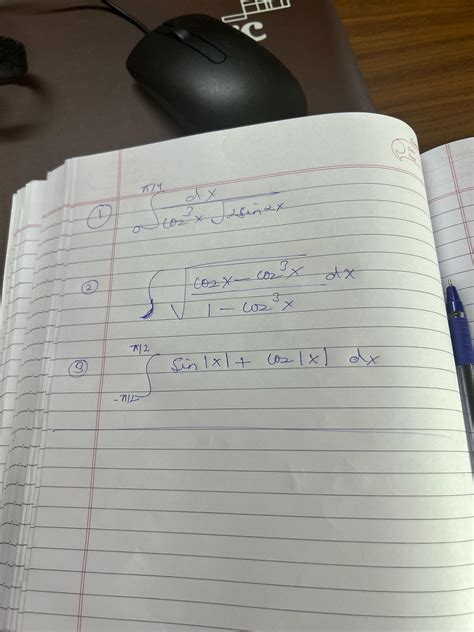 ① π/4 ∫ 0 dx / cos³x √2sin2x
② ∫ √ cosx - cos³x / 1 - cos³x dx
③ π/2 ∫ -π/2 sin|x| + cos|x| dx